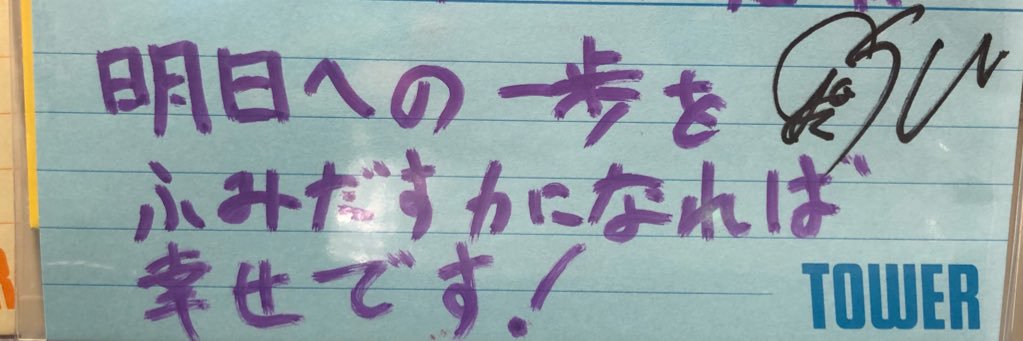 明日への一歩を
ふみだす力になれば
幸せです!
TOWER